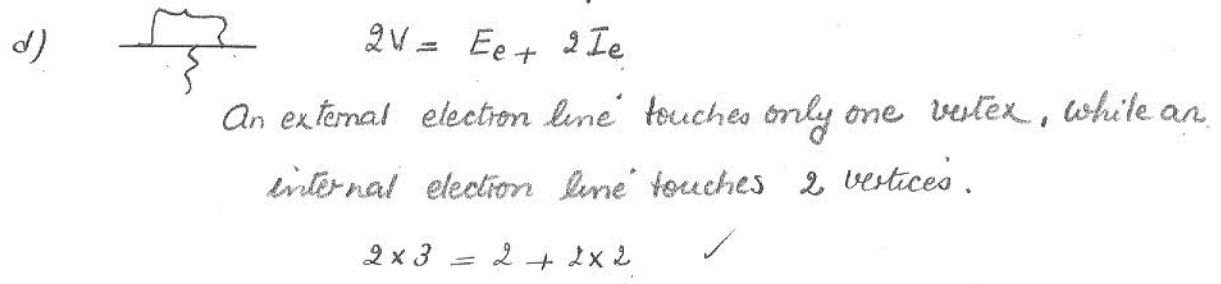 d) 2V = Ee + 2Ie
An external electron line touches only one vertex, while an
internal electron line touches 2 vertices.
2 × 3 = 2 + 2 × 2 ✓